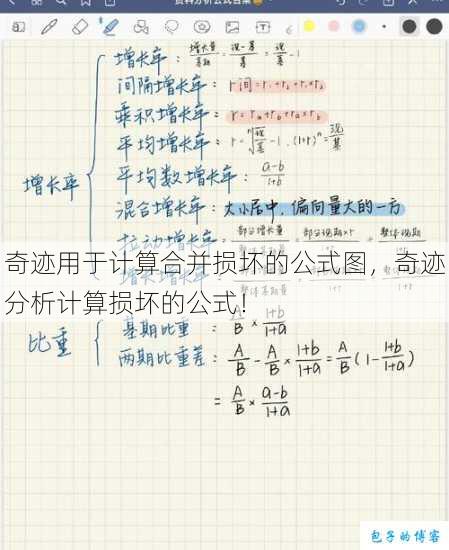 资料分析公式合集
增长率：增长量/基期 = 现-基/基 = 现/基 - 1
间隔增长率：r间=r₁+r₂+r₁×r₂
乘积增长率：r=ra+rb+ra×rb
平均增长率：r=ⁿ√现/基 - 1，(1+r)ⁿ=现/基
增长率
平均数增长率：a-b/1+b
混合增长率：大小居中，偏向量大的一方
拉动增长率
奇迹用于计算合并损坏的公式图，奇迹
分析计算损坏的公式！
基期比重：A/B × 1+b/1+a
比重
两期比重差：A/B - A/B × 1+b/1+a = A/B (1 - 1+b/1+a)
= A/B × a-b/1+a
包子的博客